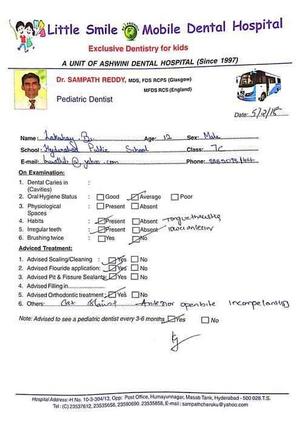 Little Smile Mobile Dental Hospital
Exclusive Dentistry for kids
A UNIT OF ASHWINI DENTAL HOSPITAL (Since 1997)
Dr. SAMPATH REDDY, MDS, FDS RCPS (Glasgow)
MFDS RCS (England)
Pediatric Dentist
Date: 5/2/15
Name: Age: 12 Sex: Male
School: Hyderabad Public School Class: 7C
E-mail: @yahoo.com Phone:
On Examination:
1. Dental Caries in :
(Cavities)
2. Oral Hygiene Status : Good Average Poor
3. Physiological : Present Absent
Spaces
4. Habits : Present Absent Tongue thrusting
5. Irregular teeth : Present Absent lower anterior
6. Brushing twice : Yes No
Adviced Treatment:
1. Advised Scaling/Cleaning : Yes No
2. Advised Flouride application: Yes No
3. Advised Pit & Fissure Sealants: Yes No
4. Advised Filling in
5. Advised Orthodontic treatment : Yes No
6. Others: Anterior openbite
Note: Advised to see a pediatric dentist every 3-6 months Yes No
Hospital Address: H No. 10-3-304/12, Opp: Post Office, Humayunnagar, Masab Tank, Hyderabad - 500 028 T.S.
Tel: (C) 23537612, 23535658, 23590690 23535858, E-mail : sampathcheruku@yahoo.com